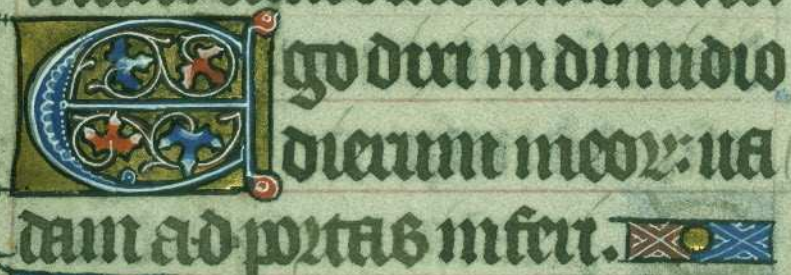 Ego dixi in dimidio
dierum meoꝝ: ua
dam ad portas inferi.